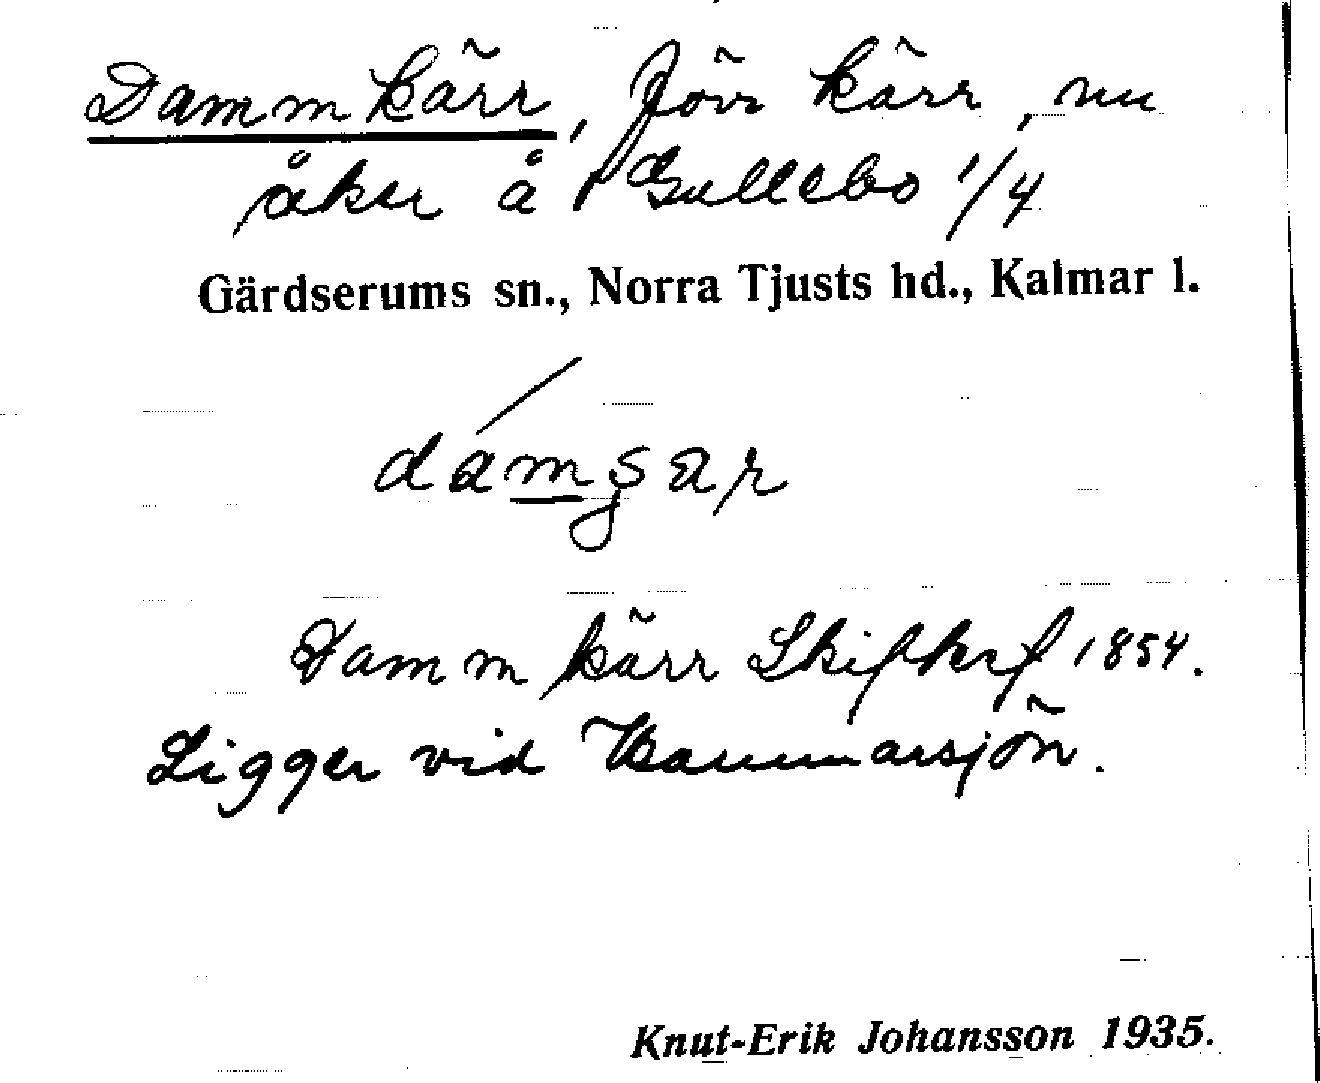 Dammkärr, förr kärr, nu
åker å Gullebo 1/4
Gärdserums sn., Norra Tjusts hd., Kalmar l.
Dammkärr Skifteskf 1854.
Ligger vid Kammarsjön.
Knut-Erik Johansson 1935.